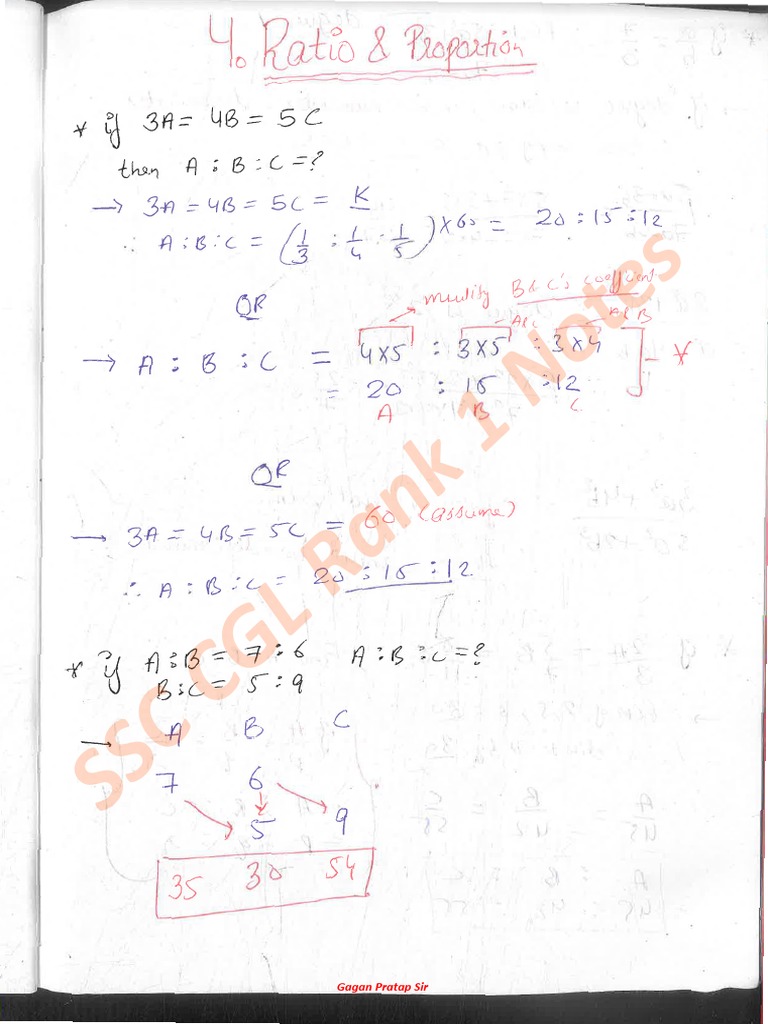 4. Ratio & Proportion
* if 3A = 4B = 5C
then A : B : C = ?
→ 3A = 4B = 5C = K
∴ A : B : C = (1/3 : 1/4 : 1/5) × 60 = 20 : 15 : 12
OR
multiply B & C's coefficient
A&C A & B
→ A : B : C = 4×5 : 3×5 : 3×4
= 20 : 15 : 12
A B C
OR
→ 3A = 4B = 5C = 60 (assume)
∴ A : B : C = 20 : 15 : 12
* if A : B = 7 : 6 A : B : C = ?
B : C = 5 : 9
→ A B C
7 6
5 9
35 30 54
SSC CGL Rank 1 Notes
Gagan Pratap Sir